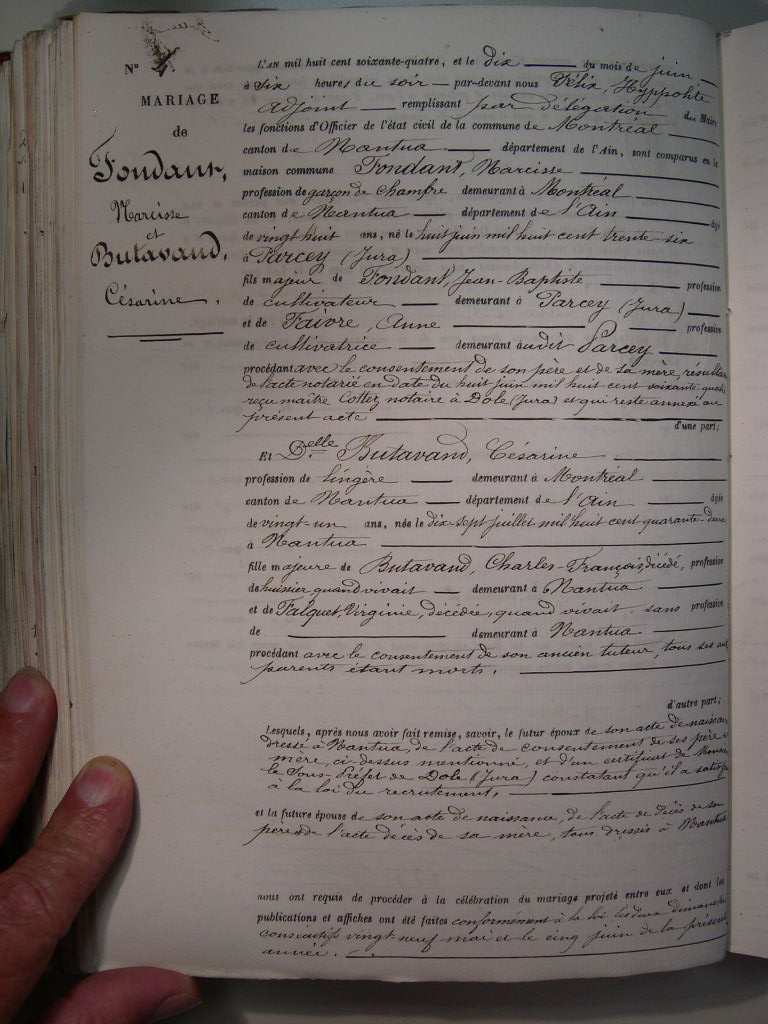 N° 4
MARIAGE
de
Fondant,
Narcisse
et
Butavand,
Césarine.
L'AN mil huit cent soixante-quatre, et le dix du mois de juin
à six heures du soir par-devant nous Félix, Hyppolite
adjoint remplissant par délégation du Maire
les fonctions d'Officier de l'état civil de la commune de Montréal
canton de Nantua département de l'Ain, sont comparus en la
maison commune Fondant, Narcisse
profession de garçon de chambre demeurant à Montréal
canton de Nantua département de l'Ain âgé
de vingt huit ans, né le huit juin mil huit cent trente six
à Parcey (Jura)
fils majeur de Fondant, Jean-Baptiste profession
de cultivateur demeurant à Parcey (Jura)
et de Faivre, Anne profession
de cultivatrice demeurant audit Parcey
procédant avec le consentement de son père et de sa mère, résultan
de l'acte notarié en date du huit juin mil huit cent soixante quat
reçu maître Cottez notaire à Dole (Jura) et qui reste annexé au
présent acte
d'une part;
Et Delle Butavand, Césarine
profession de lingère demeurant à Montréal
canton de Nantua département de l'Ain âgée
de vingt-un ans, née le dix-sept juillet mil huit cent quarante-deux
à Nantua
fille majeure de Butavand, Charles-François, décédé, profession
de huissier quand vivait demeurant à Nantua
et de Falquet, Virginie, décédée, quand vivait sans profession
de demeurant à Nantua
procédant avec le consentement de son ancien tuteur, tous ses
parents étant morts.
d'autre part;
Lesquels, après nous avoir fait remise, savoir, le futur époux de son acte de naissan
dressé à Nantua, de l'acte de consentement de ses père
mère, ci-dessus mentionné, et d'un certificat de
le Sous-Préfet de Dole (Jura) constatant qu'il a satisfa
à la loi du recrutement,
et la future épouse de son acte de naissance, de l'acte de décès de son
père & de l'acte décès de sa mère, tous dressés à Nantua
nous ont requis de procéder à la célébration du mariage projeté entre eux et dont les
publications et affiches ont été faites conformément à la loi les deux dimanches
consécutifs vingt-neuf mai et le cinq juin de la présente
année.